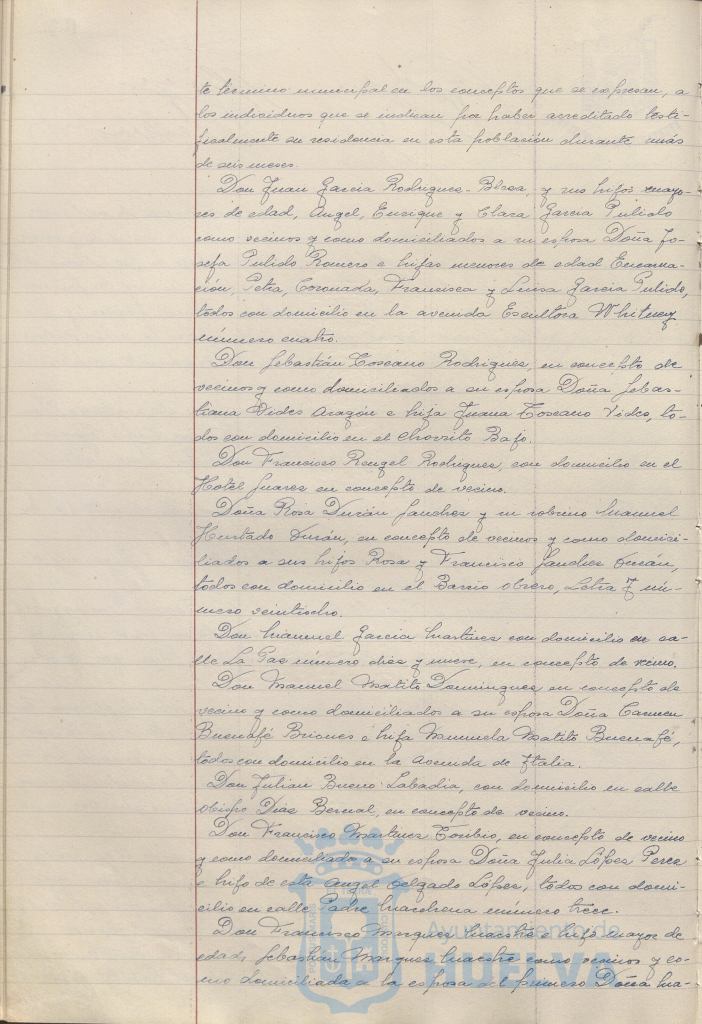 te término municipal en los conceptos que se expresan, a
los individuos que se indican por haber acreditado testi-
ficalmente su residencia en esta población durante más
de seis meses.
Don Juan García Rodríguez-Bersa, y sus hijos mayo-
res de edad, Angel, Enrique y Clara García Pulido
como vecinos y como domiciliados a su esposa Doña Jo-
sefa Pulido Romero e hijas menores de edad Encarna-
ción, Petra, Coronada, Francisca y Luisa García Pulido,
todos con domicilio en la avenida Escultora Whitney
número cuatro.
Don Sebastián Toscano Rodríguez, en concepto de
vecinos y como domiciliados a su esposa Doña Sebas-
tiana Vides Aragón e hija Juana Toscano Vides, to-
dos con domicilio en el Chorrito Bajo.
Don Francisco Rengel Rodríguez, con domicilio en el
Hotel Suarez en concepto de vecino.
Doña Rosa Durán Sanchez y su sobrino Manuel
Hurtado Durán, en concepto de vecinos y como domici-
liados a sus hijos Rosa y Francisco Sanchez Durán,
todos con domicilio en el Barrio Obrero, Letra J nú-
mero veintiocho.
Don Manuel García Martínez con domicilio en ca-
lle La Paz número diez y nueve, en concepto de vecino.
Don Manuel Matito Domínguez en concepto de
vecino y como domiciliados a su esposa Doña Carmen
Buenafé Briones e hija Manuela Matito Buenafé,
todos con domicilio en la Avenida de Italia.
Don Julian Bueno Labadía, con domicilio en calle
Obispo Díaz Bernal, en concepto de vecino.
Don Francisco Martínez Toribio, en concepto de vecino
y como domiciliado a su esposa Doña Julia López Perez
e hijo de esta Angel Delgado López, todos con domi-
cilio en calle Padre Marchena número trece.
Don Francisco Marquez Maestre e hijo mayor de
edad, Sebastián Marquez Maestre como vecinos y co-
mo domiciliada a la esposa del primero Doña Ma-
Ayuntamiento de
HUELVA